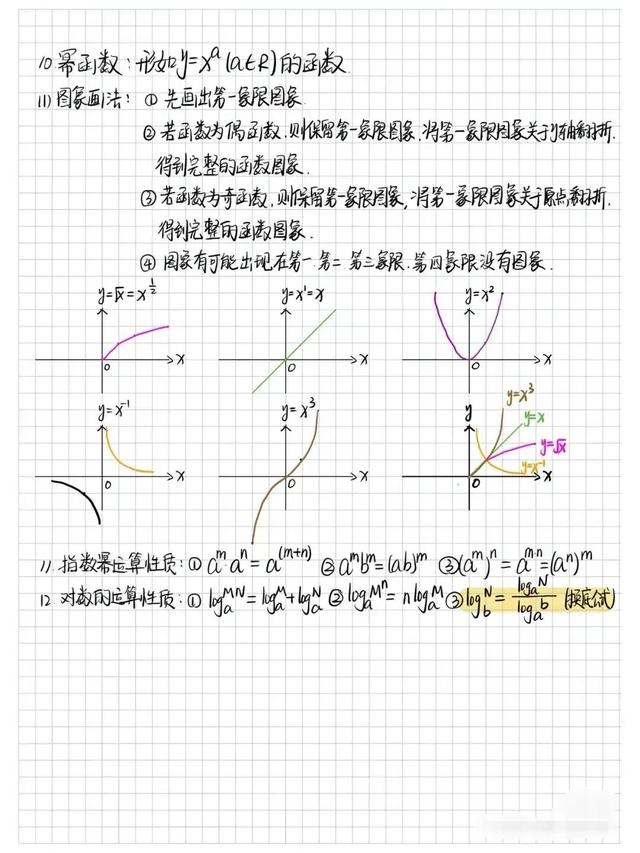 10 幂函数:形如y=xᵃ(a∈R)的函数
11) 图象画法:① 先画出第一象限图象
② 若函数为偶函数,则保留第一象限图象,将第一象限图象关于y轴翻折.
得到完整的函数图象.
③ 若函数为奇函数,则保留第一象限图象,将第一象限图象关于原点翻折.
得到完整的函数图象.
④ 图象有可能出现在第一.第二.第三象限.第四象限没有图象.
y=√x=x^½
x
0
y=x¹=x
x
0
y=x²
x
0
y=x⁻¹
x
0
y=x³
x
0
y
y=x³
y=x
y=√x
y=x⁻¹
x
0
11.指数幂运算性质:① aᵐ·aⁿ=a^(m+n) ② aᵐbᵐ=(ab)ᵐ ③(aᵐ)ⁿ=a^(m·n)=(aⁿ)ᵐ
12.对数的运算性质:① logₐMN=logₐM+logₐN ② logₐMⁿ=nlogₐM ③ log_b N=logₐN/logₐb (换底公式)